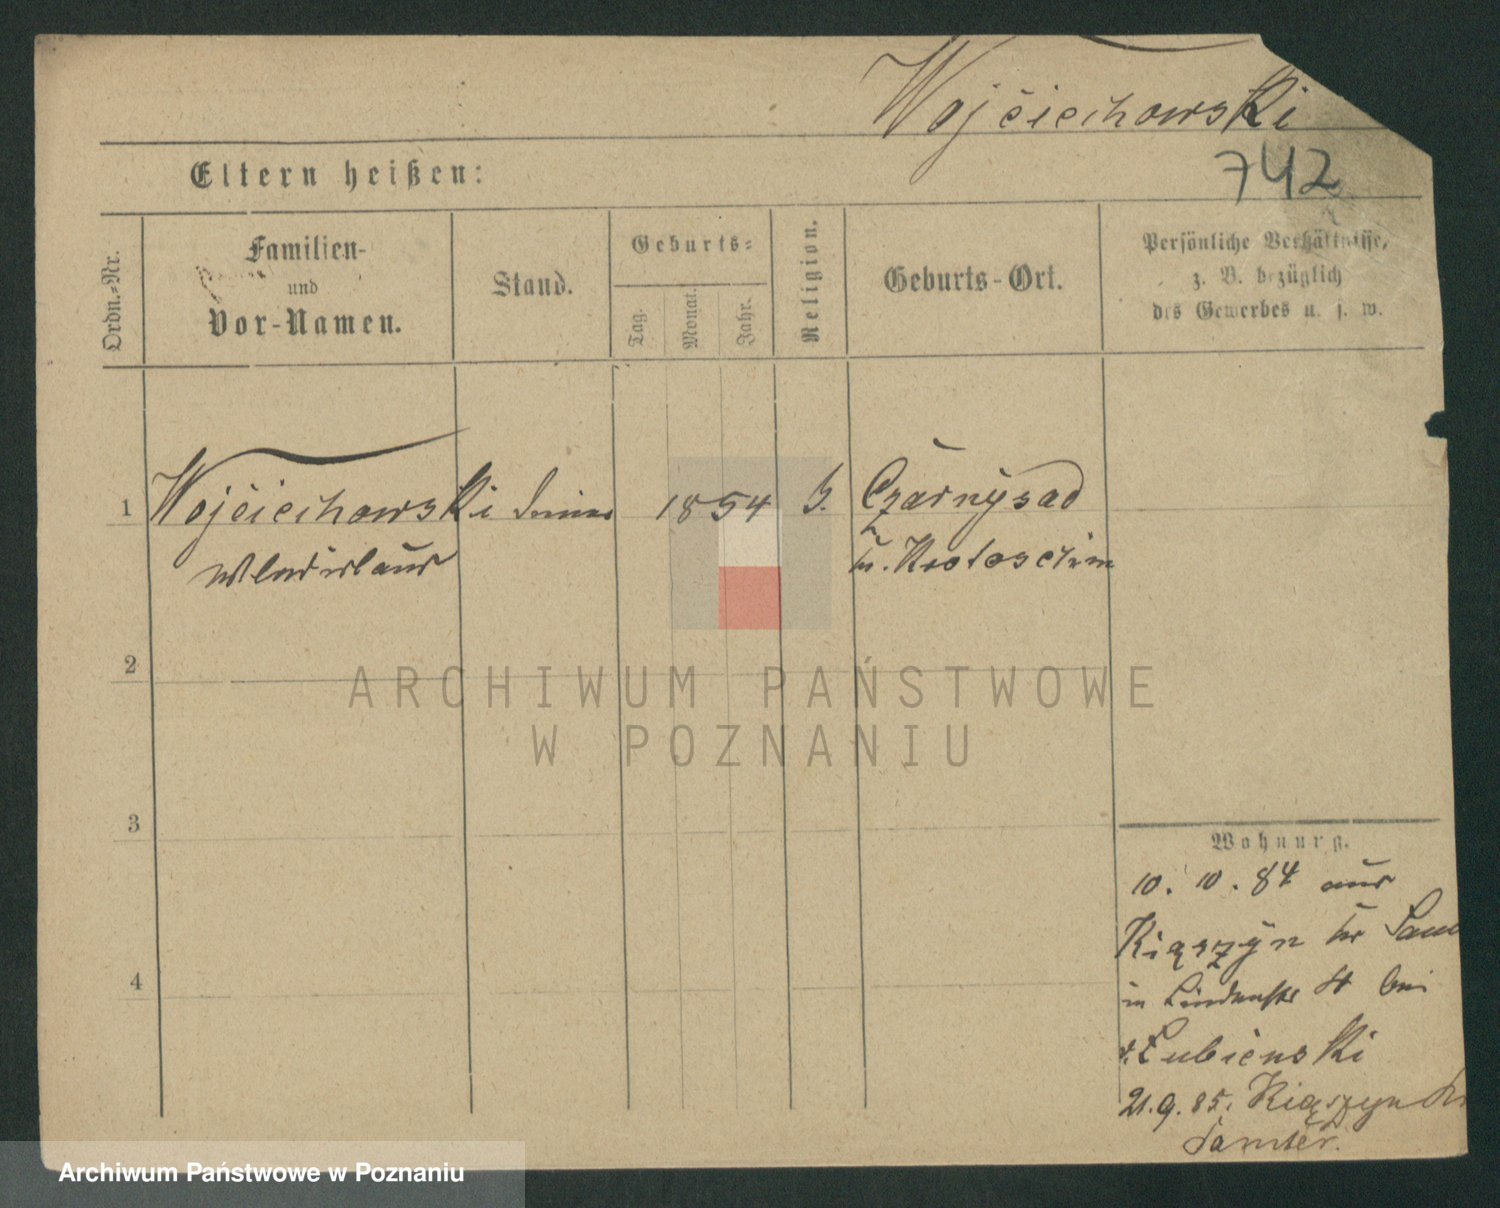 Wojciechowski
742
Eltern heißen:
Ordn.-Nr.
Familien-
und
Vor-Namen.
Stand.
Geburts-
Tag.
Monat.
Jahr.
Religion.
Geburts-Ort.
Persönliche Verhältnisse,
z. B. bezüglich
des Gewerbes u. s. w.
1 Wojciechowski 1854 Czarnysad
Wladislaus Kr. Krotoschin
2
3
4
ARCHIWUM PAŃSTWOWE
W POZNANIU
Wohnung.
10. 10. 84 aus
Kiąszyn Kr Sam
in Lindenstr 4 bei
v. Lubienski
21. 9. 85. Kiąszyn Kr
Samter.
Archiwum Państwowe w Poznaniu